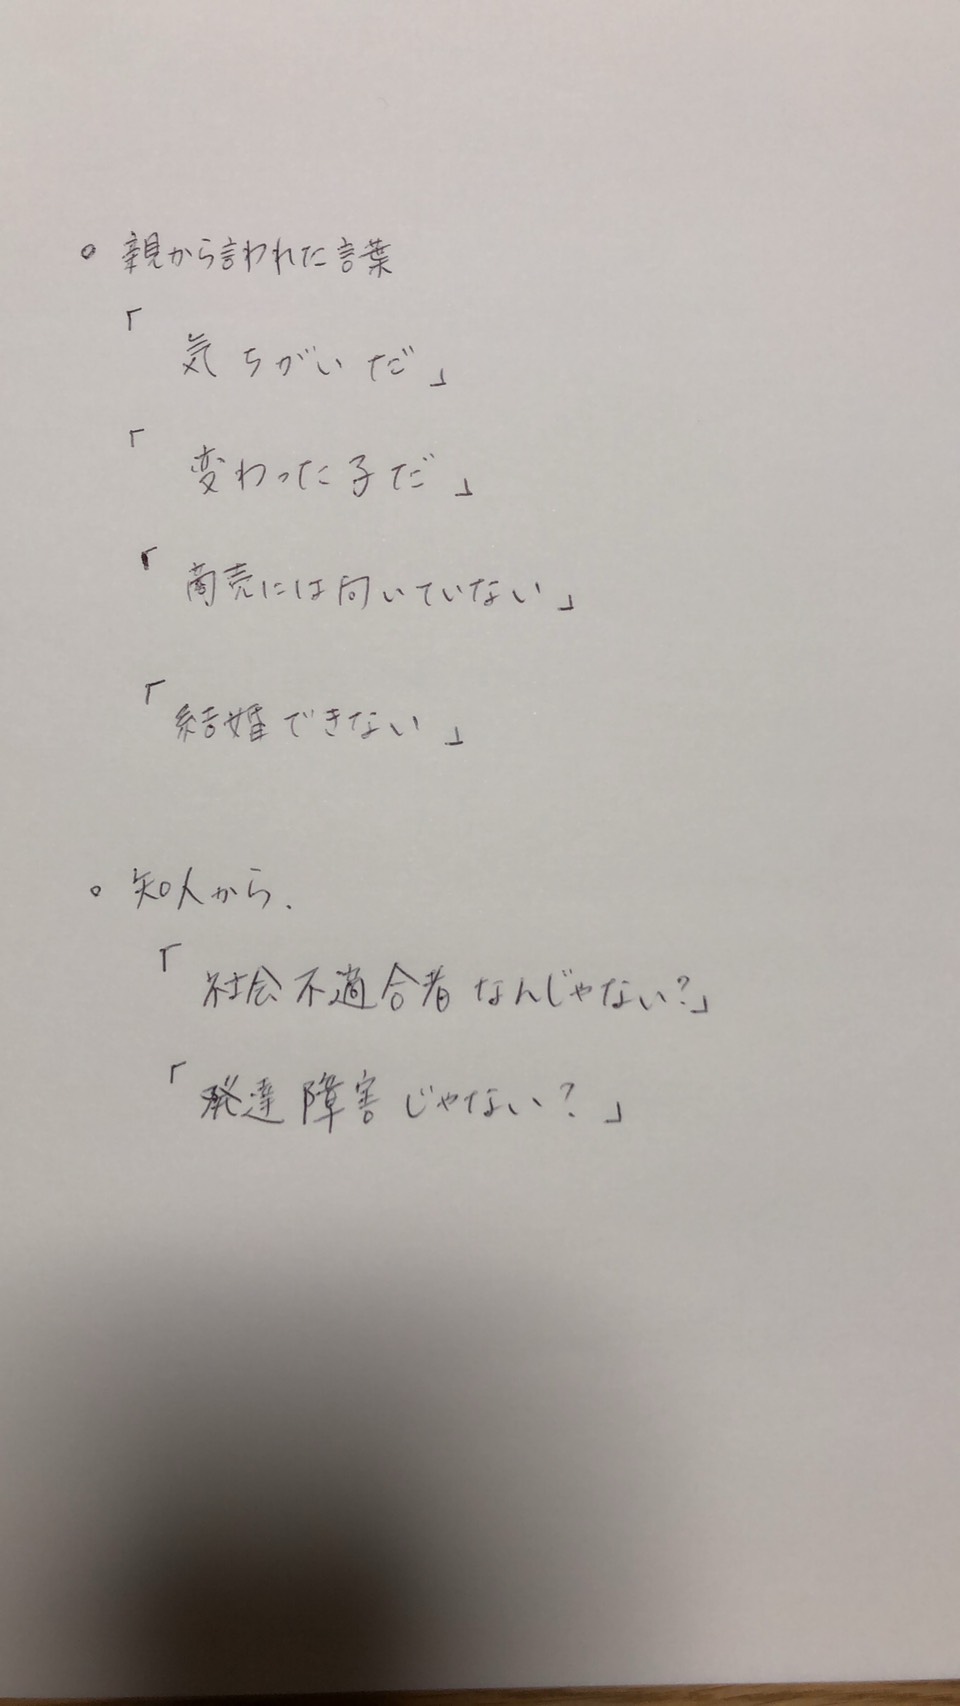 。親から言われた言葉
「気ちがいだ」
「変わった子だ」
「商売には向いていない」
「結婚できない」
。知人から.
「社会不適合者なんじゃない?」
「発達障害じゃない?」